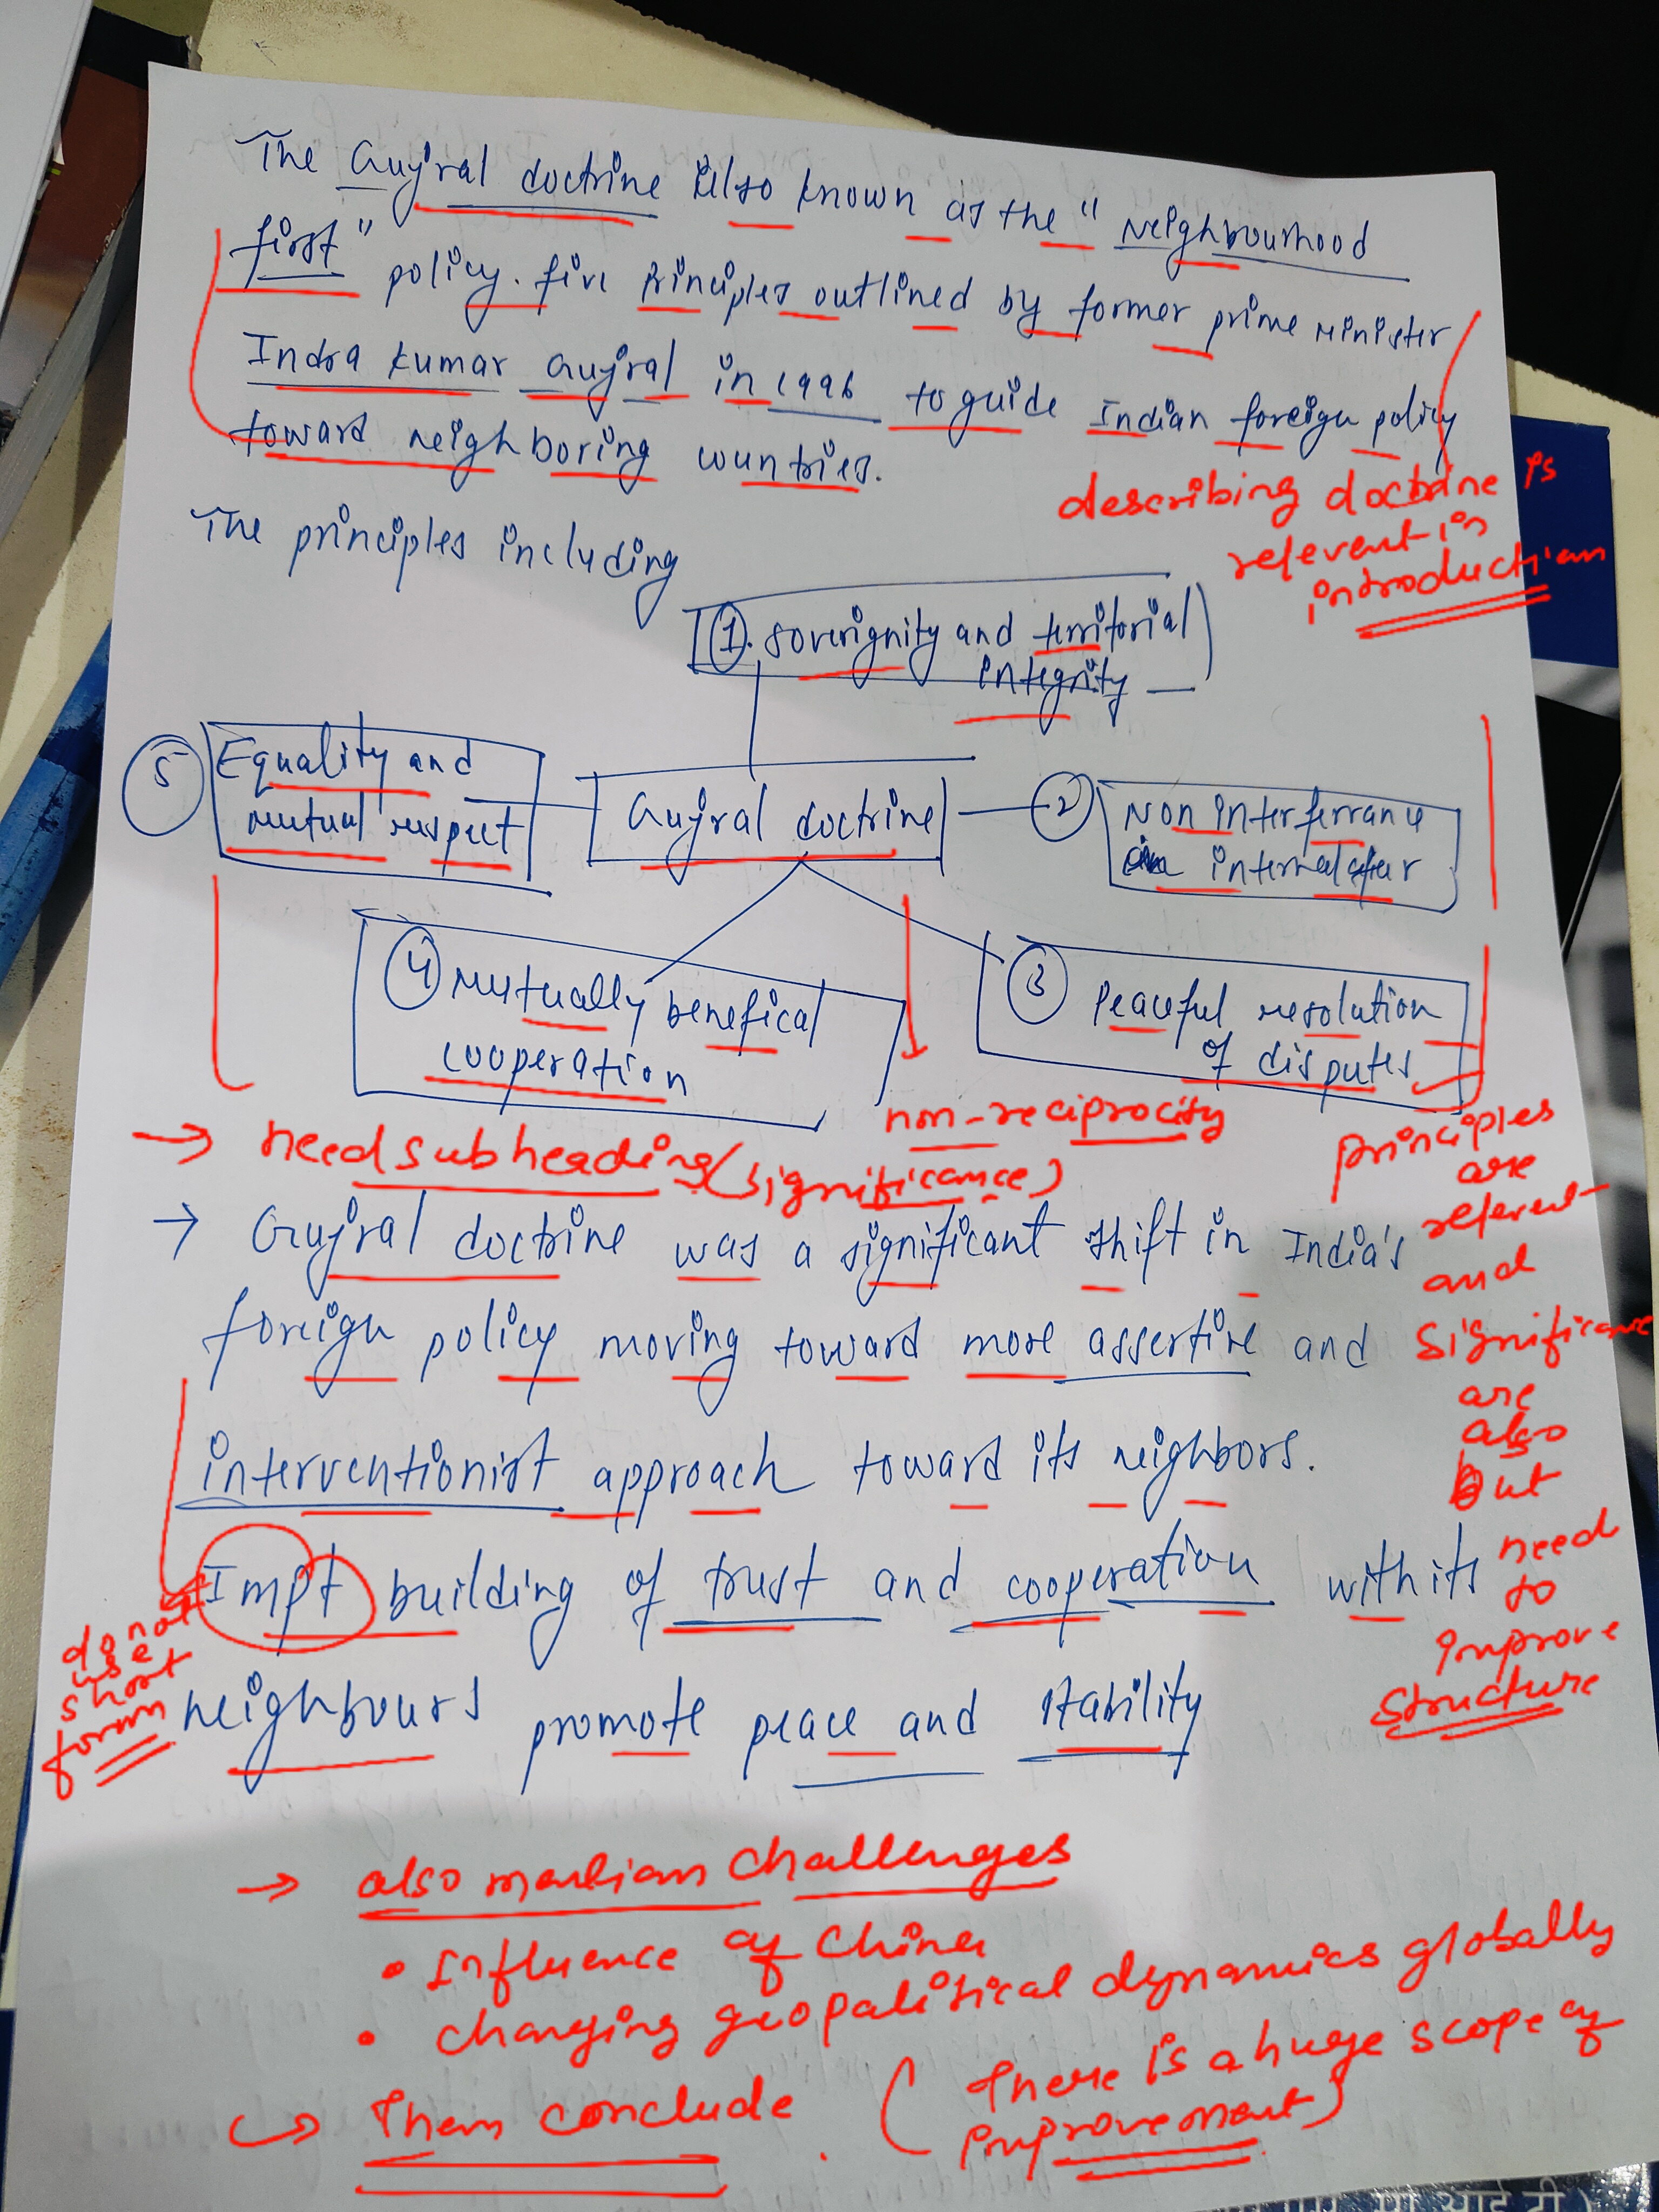 The Gujral doctrine also known as the " Neighbourhood
first" policy. five principles outlined by former prime Minister
Indra kumar Gujral in 1996 to guide Indian foreign policy
toward neighboring countries.
describing doctrine is
relevent in
introduction
The principles including
1. Soverignity and territorial
integrity
5 Equality and
mutual respect
Gujral doctrine
2 Non interferrance
in internal
4 Mutually benefical
cooperation
3 Peaceful resolution
of disputes
non-reciprocity
→ need subheading (significance)
principles
are
relevent
and
significance
are
also
but
need
to
improve
structure
→ Gujral doctrine was a significant shift in India's
foreign policy moving toward more assertive and
interventionist approach toward its neighbors.
Impt building of trust and cooperation with its
neighbours promote peace and stability
do not
use
short
form
→ also mention challenges
• Influence of China
• changing geopolitical dynamics globally
↪ Then conclude. (There is a huge scope of
improvement)
मा आई टी